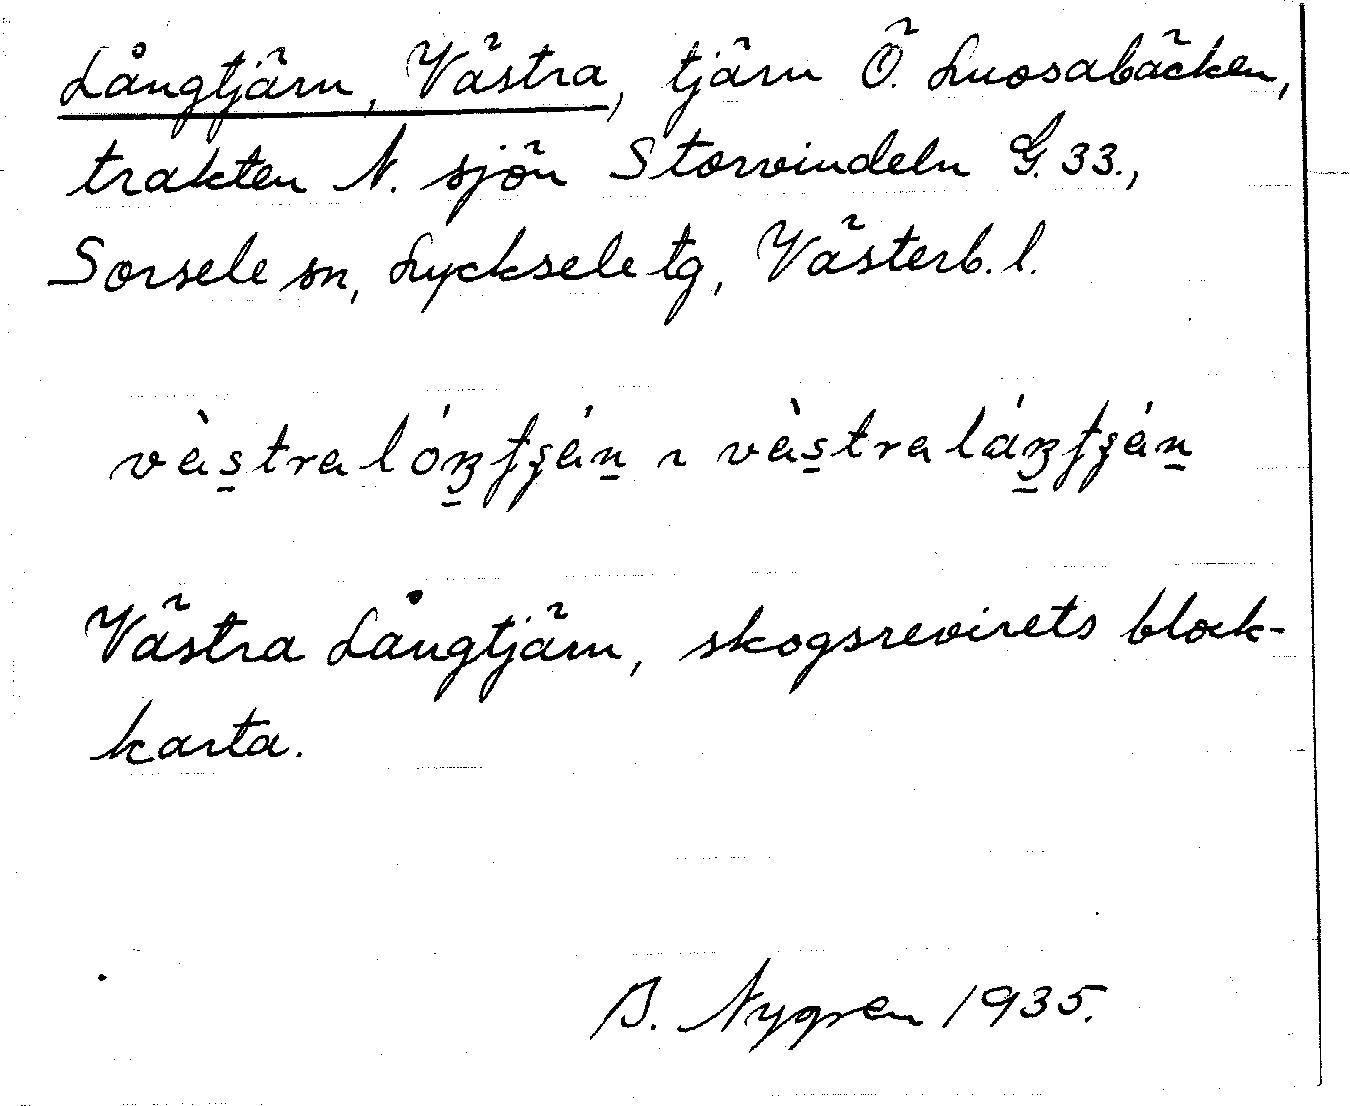 Långtjärn, Västra, tjärn Ö. Luosabäcken,
trakten N. sjön Storvindeln G. 33.,
Sorsele sn, Lycksele tg, Västerb. l.
Västra Långtjärn, skogsrevirets block-
karta.
B. Nygren 1935.